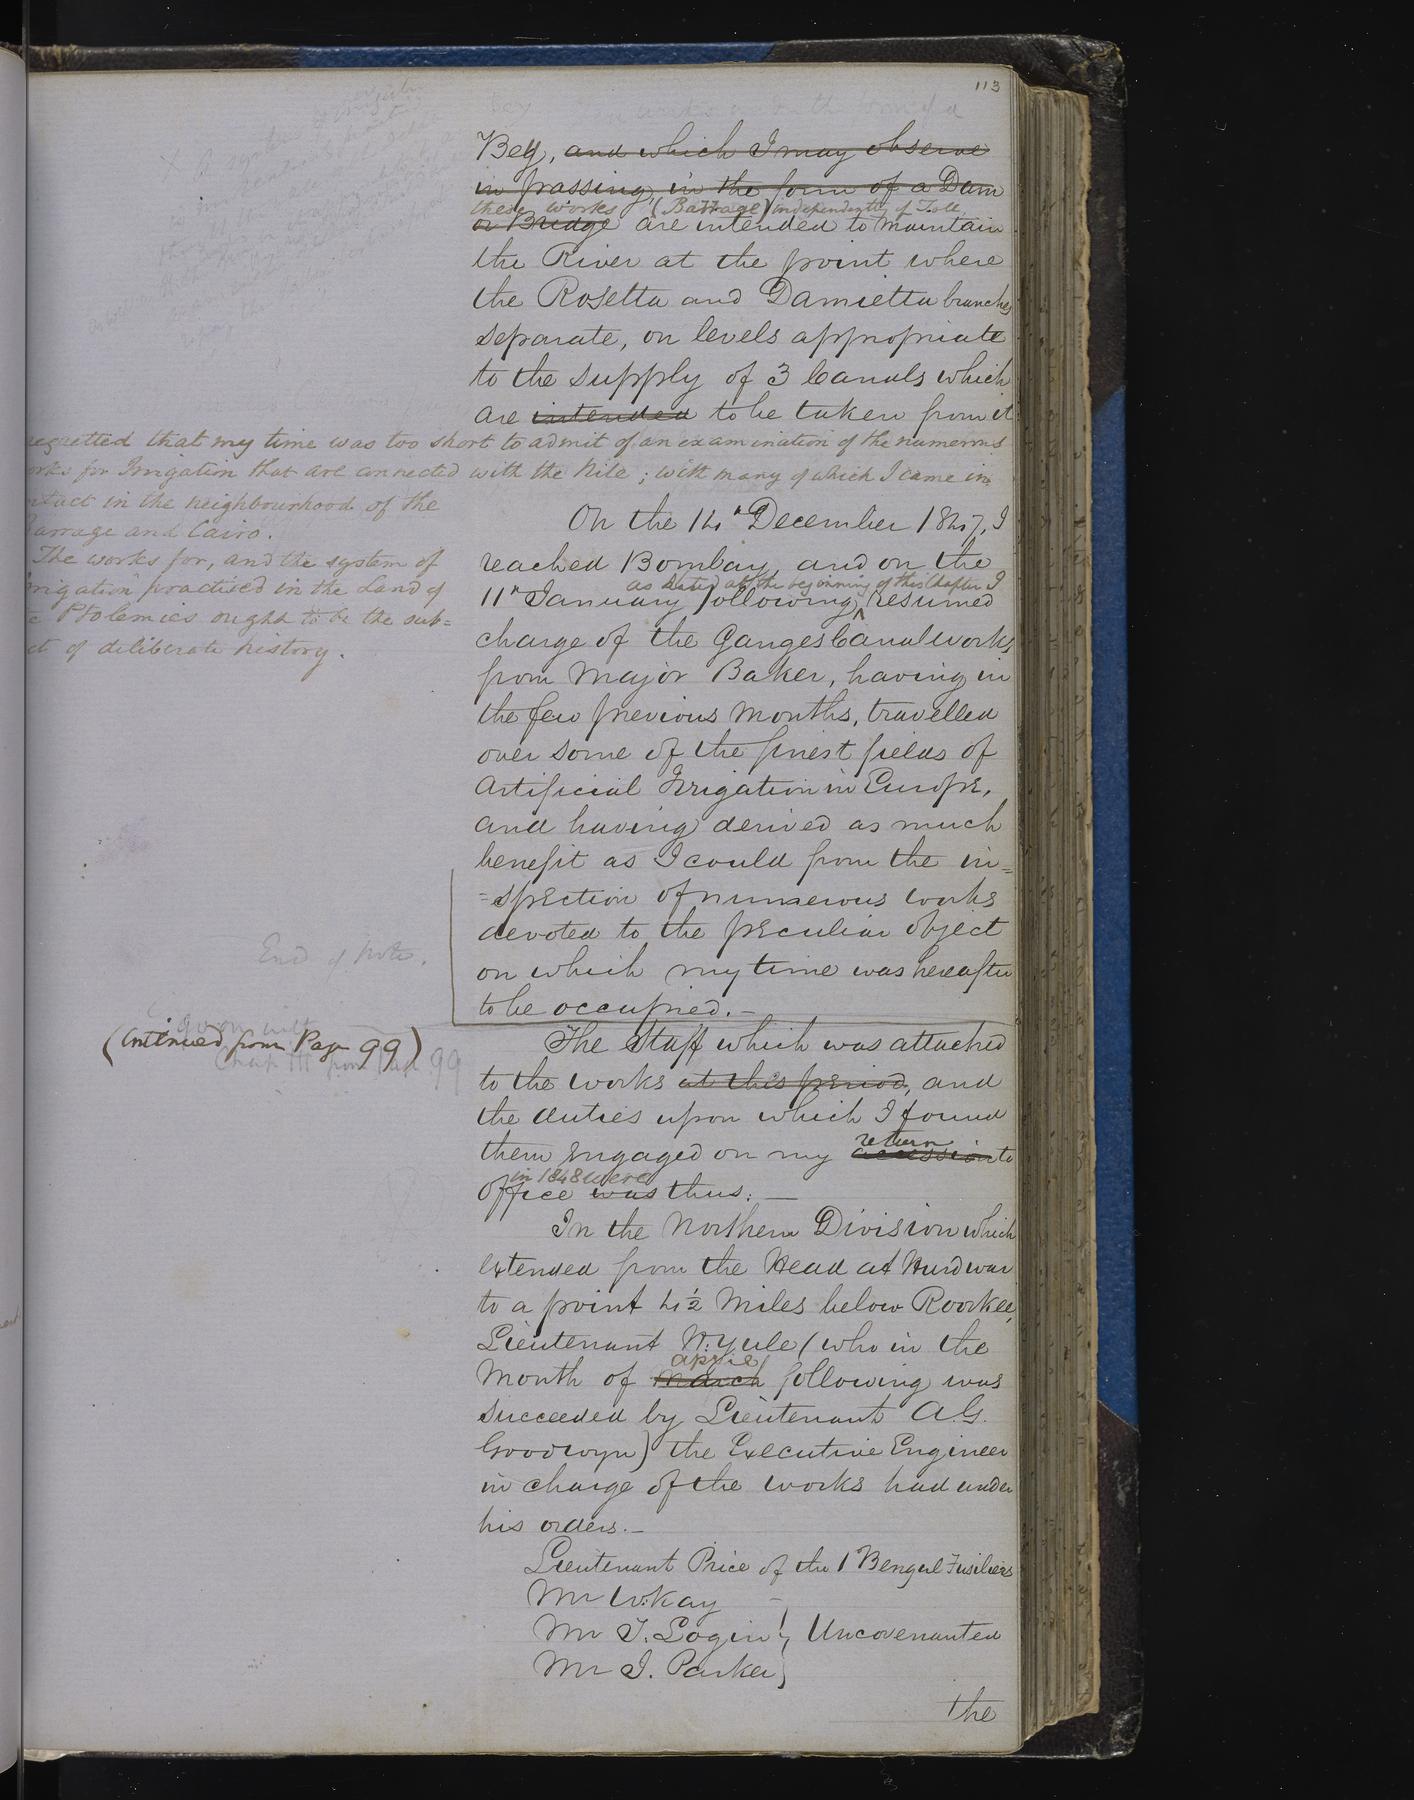 113
Bey, and which I may observe
in passing, in the form of a Dam
these works (Barrage) independently of Tolls
or Bridge are intended to maintain
the River at the point where
the Rosetta and Damietta branches
separate, on levels appropriate
to the supply of 3 Canals which
are intended to be taken from it
regretted that my time was too short to admit of an examination of the numerous
works for Irrigation that are connected with the Nile; with many of which I came in
contact in the neighbourhood of the
Barrage and Cairo.
The works for, and the system of
irrigation practised in the Land of
the Ptolemies ought to be the sub=
ject of deliberate history.
On the 14th December 1847, I
reached Bombay, and on the
as stated at the beginning of this Chapter I
11th January following resumed
charge of the Ganges Canal works
from Major Baker, having in
the few previous months, travelled
over some of the finest fields of
Artificial Irrigation in Europe,
and having derived as much
benefit as I could from the in=
=spection of numerous works
devoted to the peculiar object
on which my time was hereafter
to be occupied.—
End of Note.
(Continued from Page 99)
The Staff which was attached
to the works at this period, and
the duties upon which I found
return
them engaged on my accession to
in 1848 were
office was thus:—
In the Northern Division which
extended from the Head at Hurdwar
to a point 4½ Miles below Roorkee,
Lieutenant H. Yule (who in the
april
Month of March following was
succeeded by Lieutenant A.G.
Goodwyn) the Executive Engineer
in charge of the works had under
his orders.—
Lieutenant Price of the 1 Bengal Fusiliers
Mr W. Kay
Mr T. Login } Uncovenanted
Mr J. Parker
the